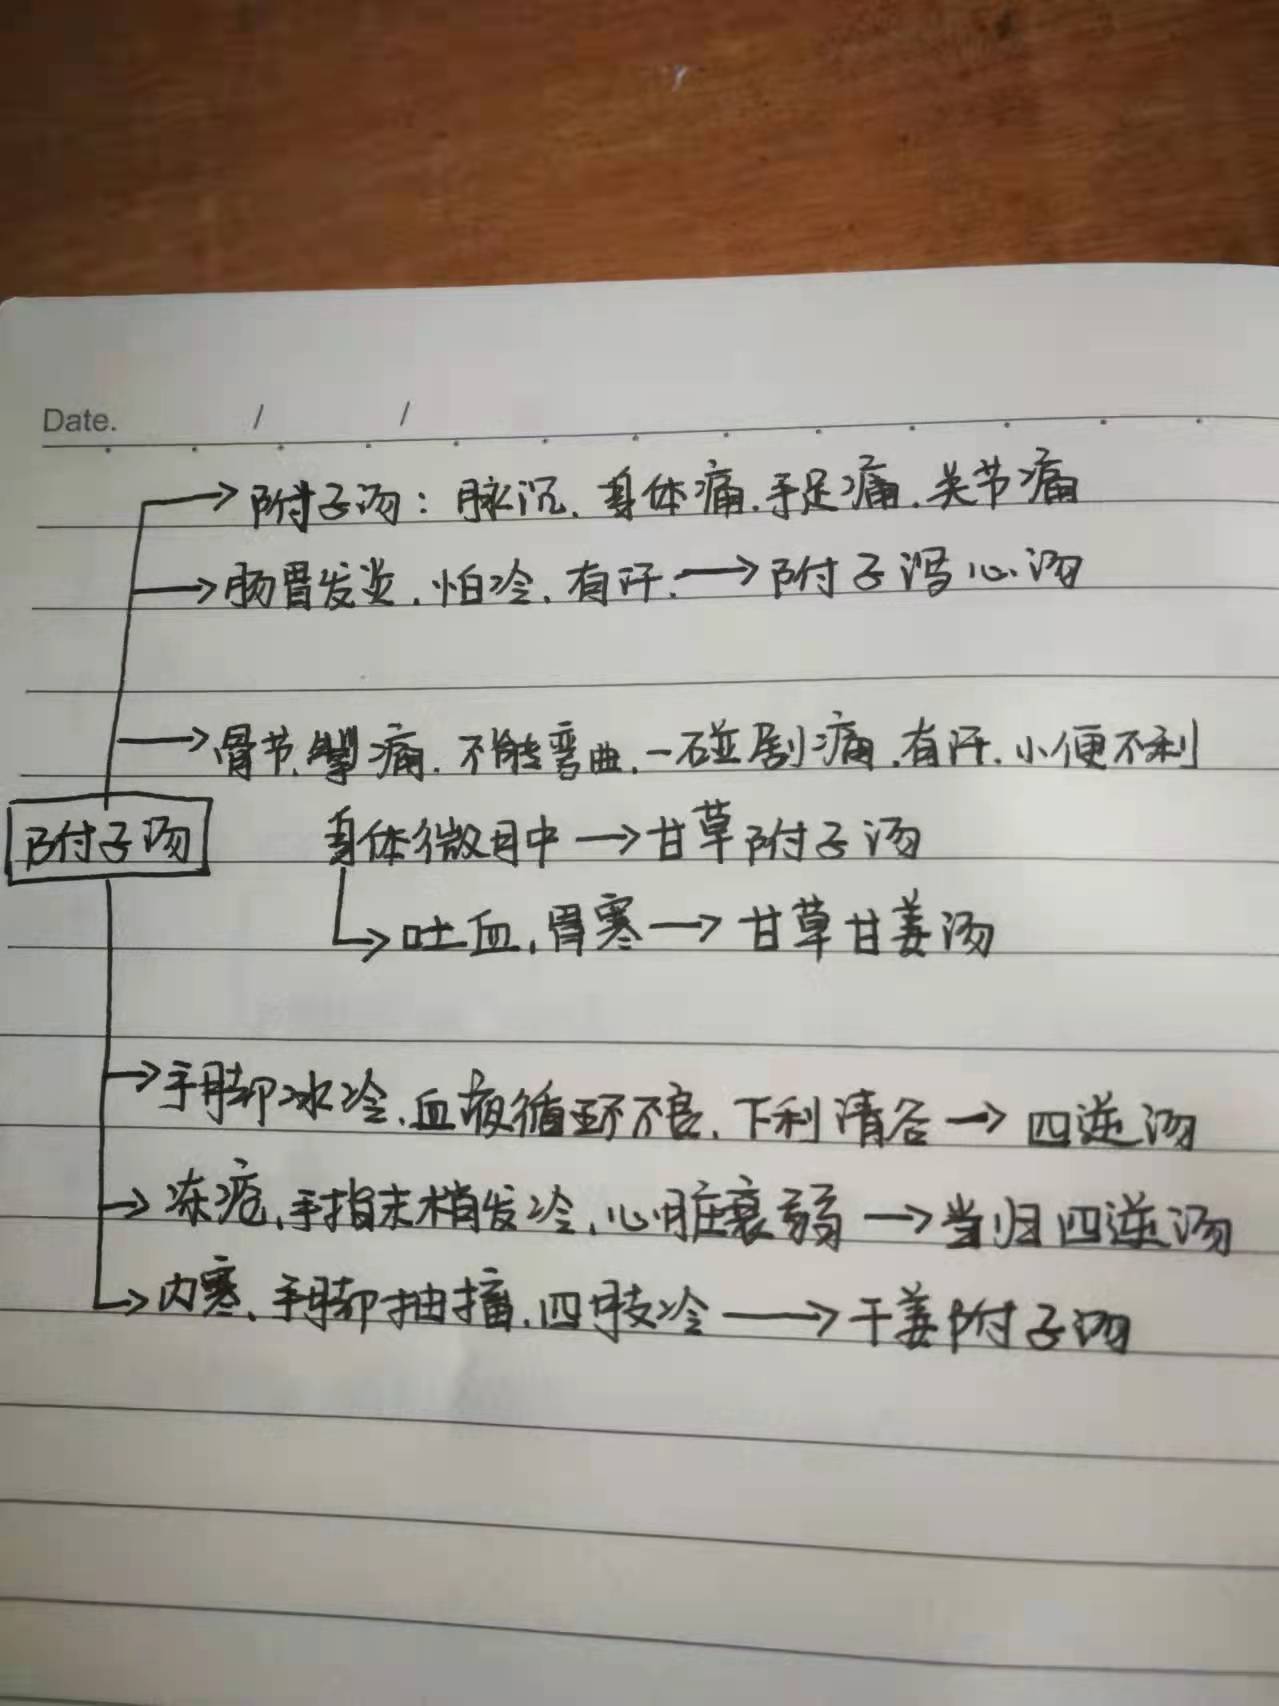 Date. / /
附子汤：脉沉、身体痛、手足痛、关节痛
肠胃发炎、怕冷、有汗、→附子泻心汤
骨节、掣痛、不能弯曲、一碰剧痛、有汗、小便不利
附子汤
身体微肿→甘草附子汤
吐血、胃寒→甘草甘姜汤
手脚冰冷、血液循环不良、下利清谷→四逆汤
冻疮、手指末梢发冷、心脏衰弱→当归四逆汤
内寒、手脚抽搐、四肢冷→干姜附子汤